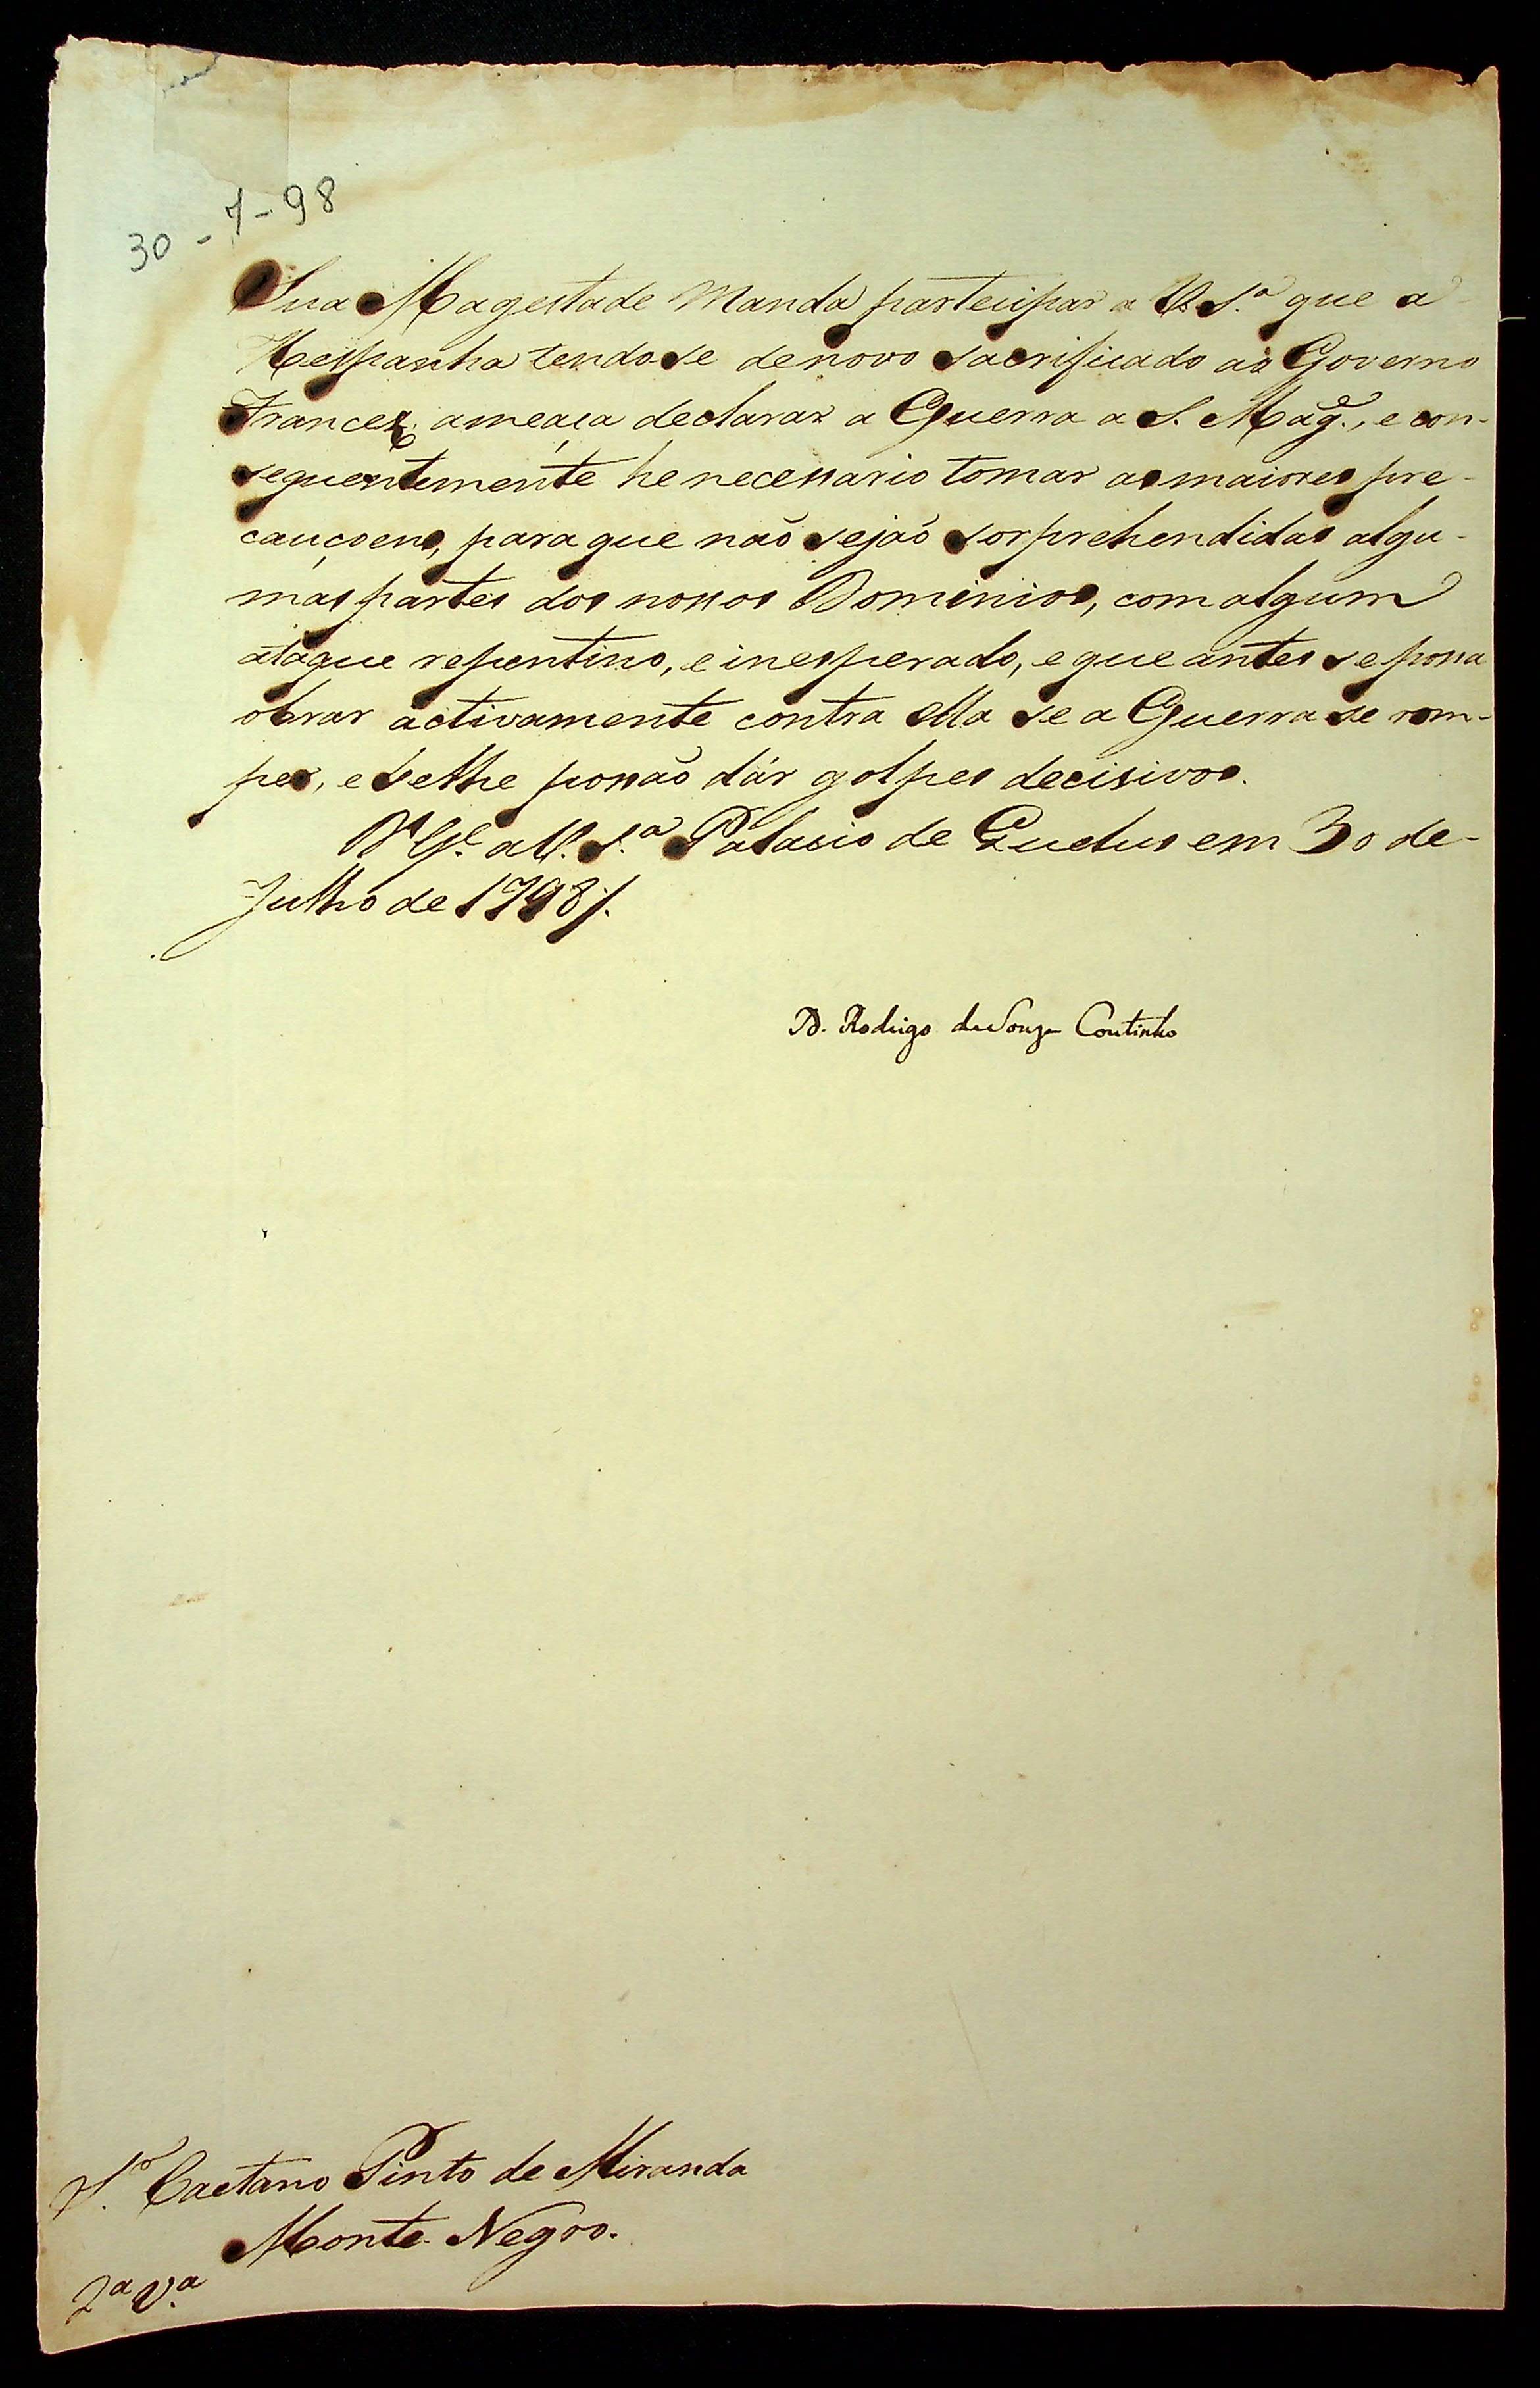 30-7-98
Sua Magestade Manda participar a V. S.ª que a
Hespanha tendo-se de novo sacrificado ao Governo
Francez, ameaça declarar a Guerra a S. Mag.e, e con-
sequentemente he necessario tomar as maiores pre-
cauçoens, para que naõ sejaõ sorprehendidas algu-
mas partes dos nossos Dominios, com algum
ataque repentino, e inesperado, e que antes se possa
obrar activamente contra ella se a Guerra se rom-
per, e se lhe possaõ dár golpes decisivos.
D.s G.e a V. S.ª Palacio de Quelus em 30 de
Julho de 1798/.
D. Rodrigo de Souza Coutinho
S.r Caetano Pinto de Miranda
Monte Negro.
2ª V.ª